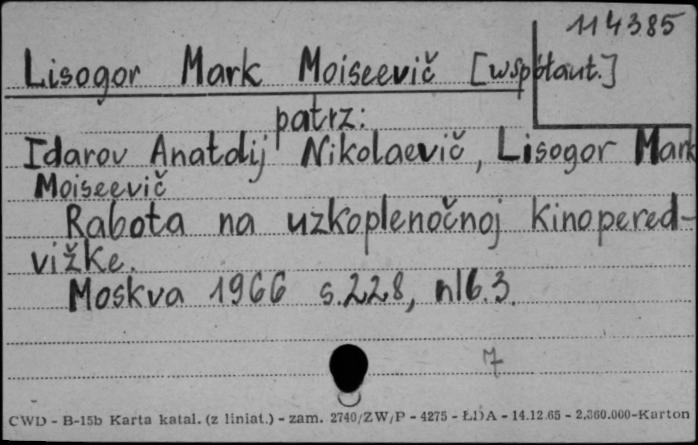 114385
Lisogor Mark Moiseevič [współaut.]
patrz:
Idarov Anatolij Nikolaevič, Lisogor Mark
Moiseevič
Rabota na uzkoplenočnoj kinopered-
vižke.
Moskva 1966 s.228, nlb.3.
7
CWD - B-15b Karta katal. (z liniat.) - zam. 2740/ZW/P - 4275 - ŁDA - 14.12.65 - 2.360.000-Karton